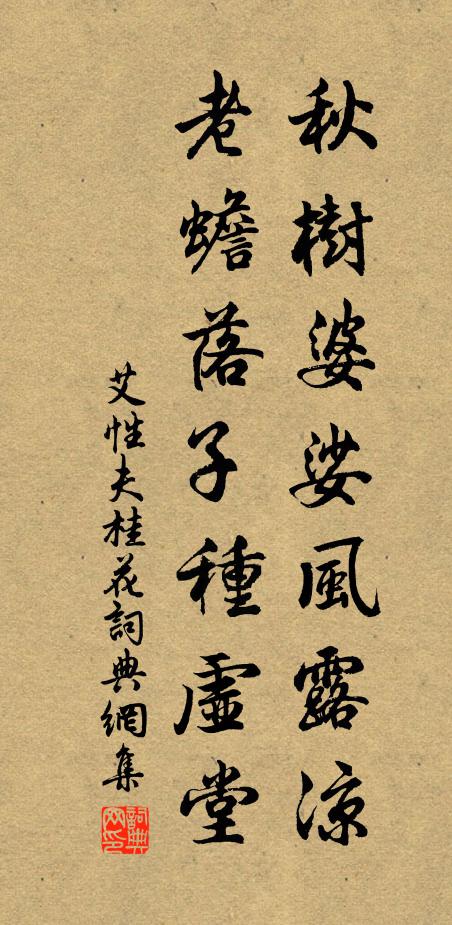 秋樹婆娑風露涼
老蟾落子種虛堂
艾性夫桂花詞典網集
詞典網印